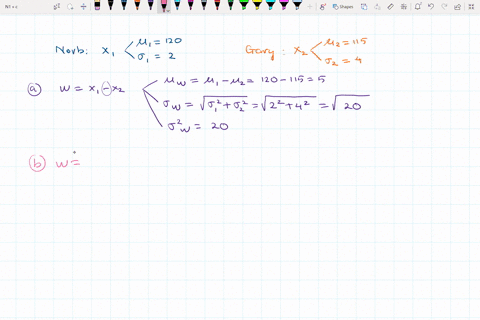 Norb: x₁ < μ₁ = 120
σ₁ = 2
Gary: x₂ < μ₂ = 115
σ₂ = 4
(a) W = x₁ - x₂
μ_W = μ₁ - μ₂ = 120 - 115 = 5
σ_W = √(σ₁² + σ₂²) = √(2² + 4²) = √20
σ²_W = 20
(b) W =